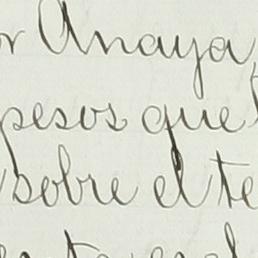 r Anaya,
pesos que
sobre el te